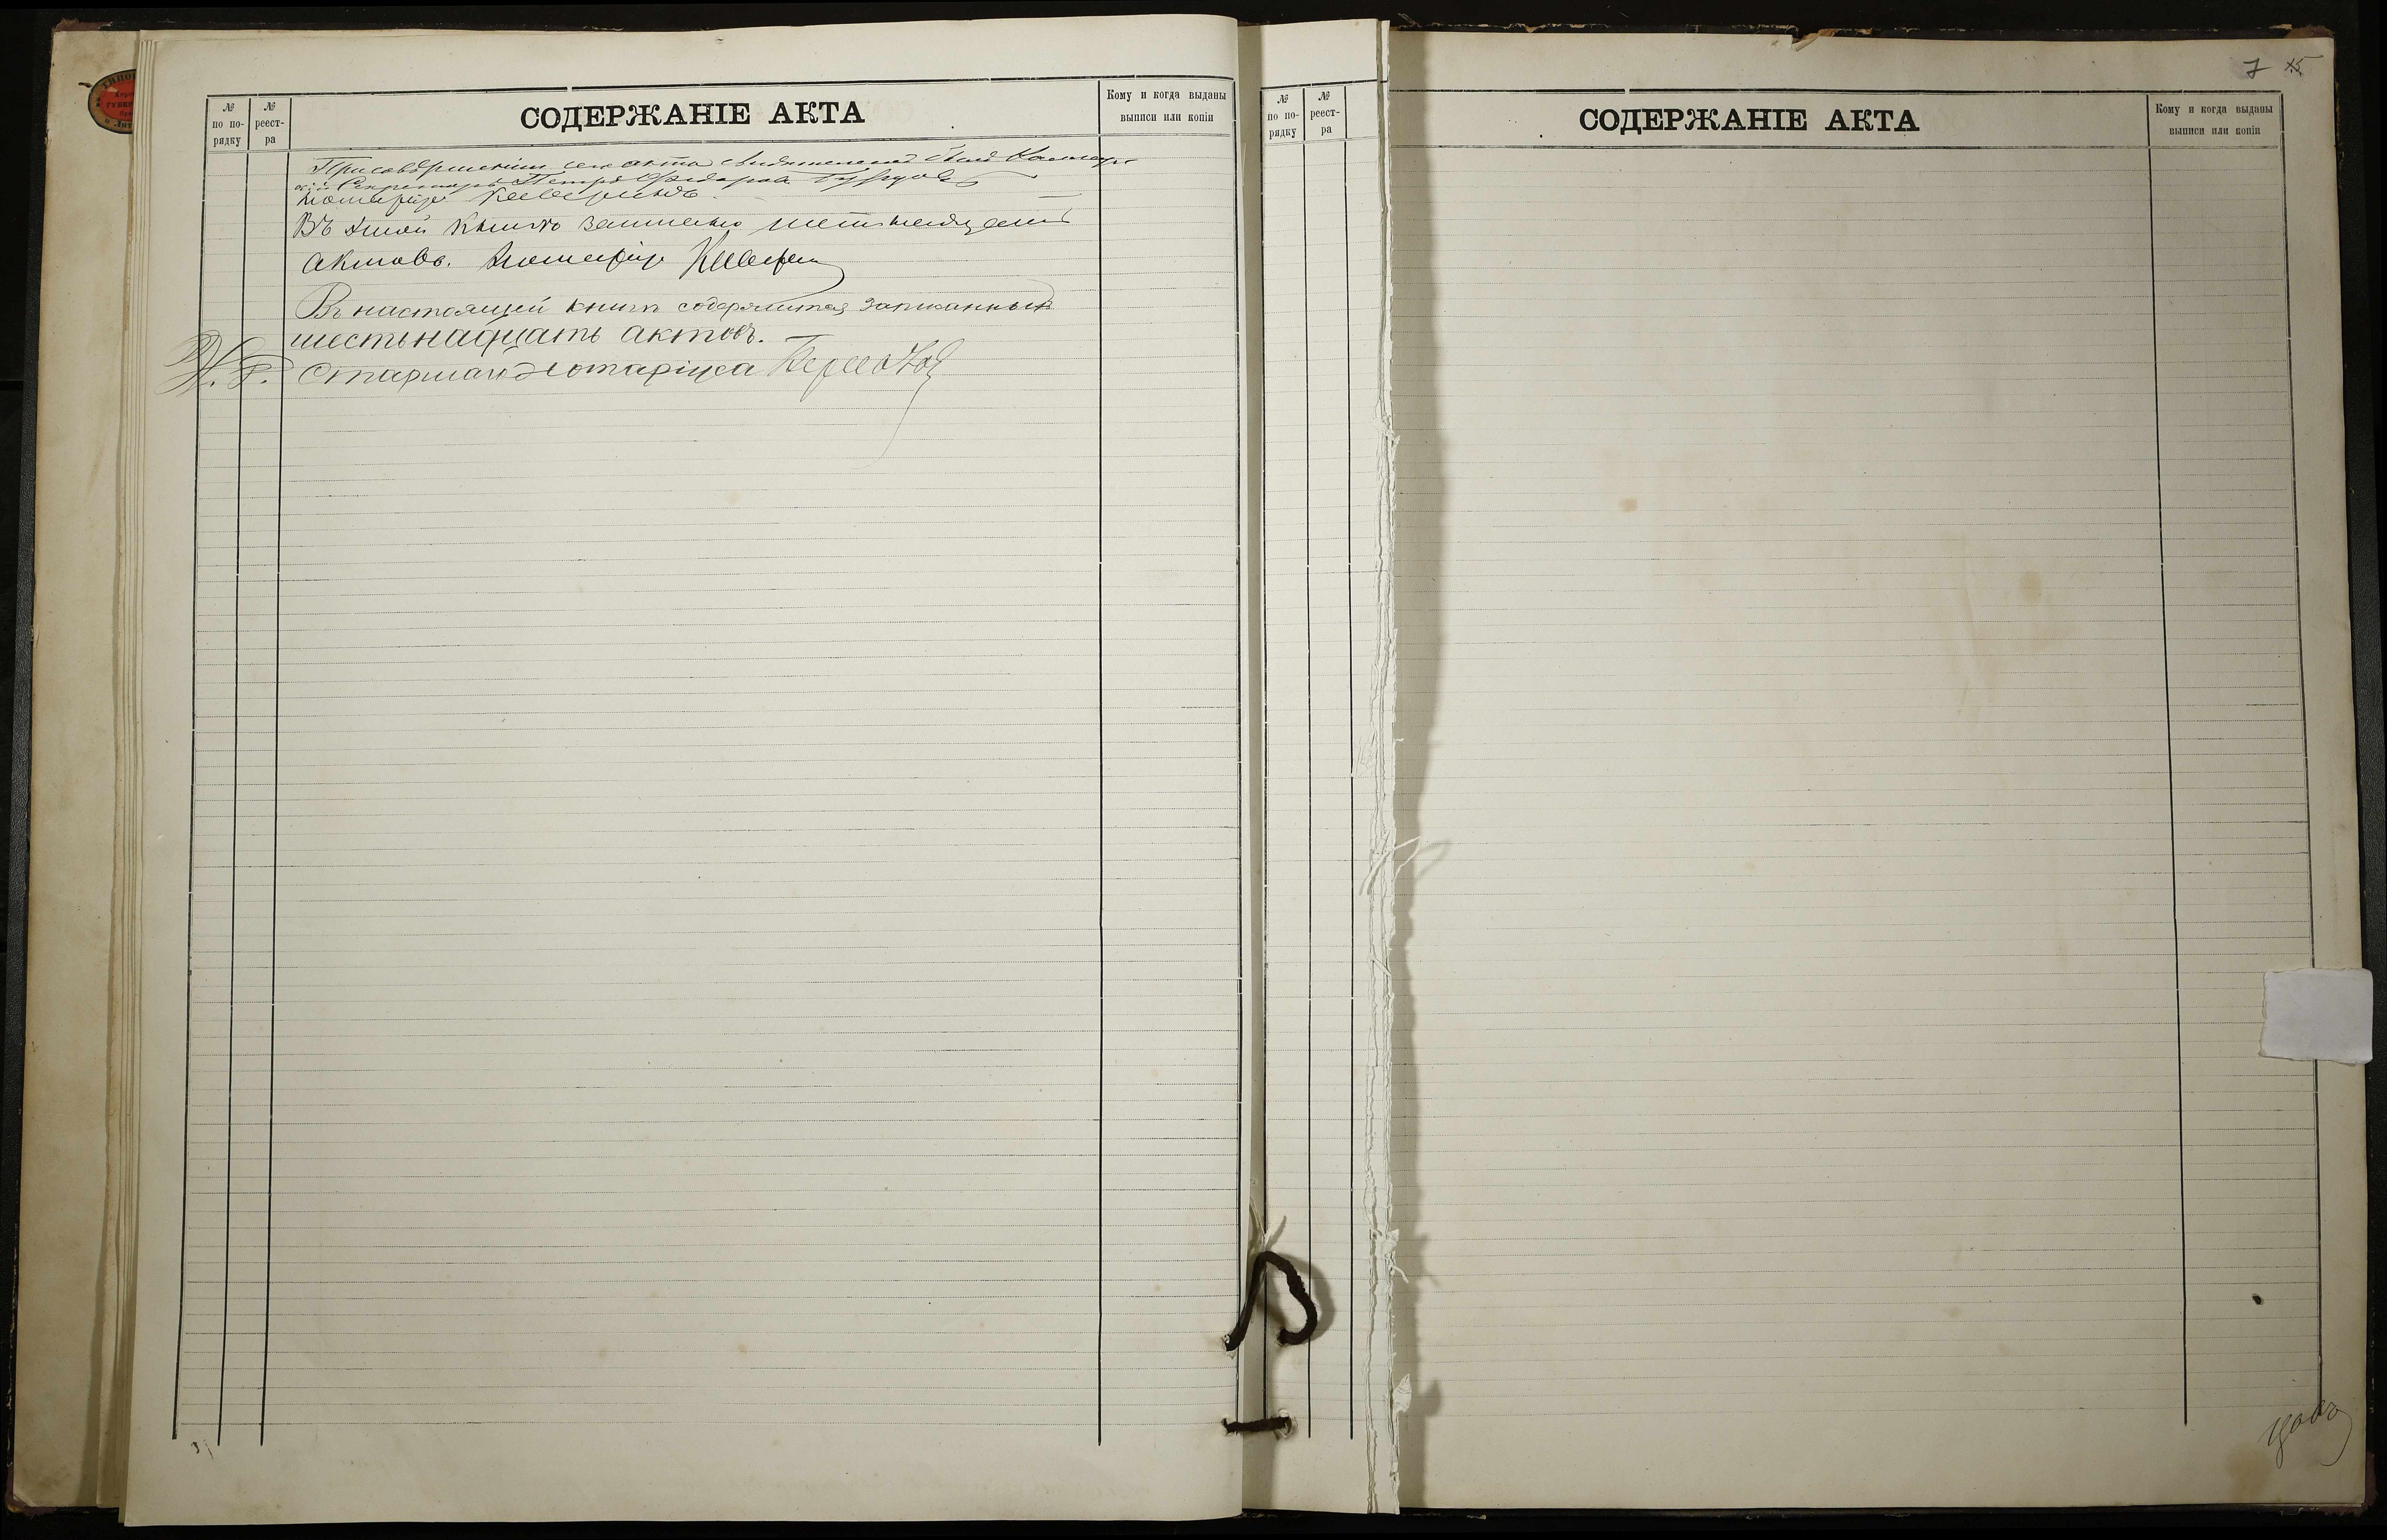 №
по по-
рядку
№
реест-
ра
СОДЕРЖАНІЕ АКТА
Кому и когда выданы
выписи или копіи
При совершеніи сего акта свидѣтелемъ былъ Коллеж-
скій Секретарь Петръ Ѳедоровъ
Нотаріусъ
Въ этой книгѣ записано шестьнадцать
актовъ. Нотаріусъ
Въ настоящей книгѣ содержится записанныхъ
шестьнадцать актовъ.
Старшаго Нотаріуса
№
по по-
рядку
№
реест-
ра
7 15
СОДЕРЖАНІЕ АКТА
Кому и когда выданы
выписи или копіи